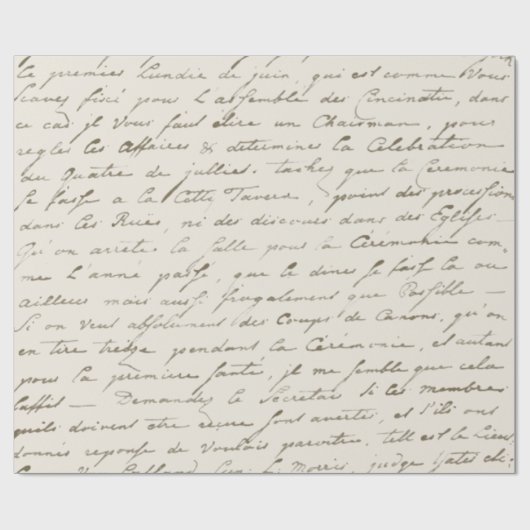 le premier Lundie de juin, qui est comme Vous
scavés fixé pour L'assemblé des Cincinatus, dans
ce cas jl Vous faut elire un Chairman, pour
regler les Affaires & determiner la Celebration
du Quatre de juillet. tachez que la Ceremonie
se fasse a la Citty Tavern, point des procession
dans les Rües, ni des discours dans des Eglises —
Qu'on arrete la salle pour la Cérémonie com-
me L'anné passé, que le diner se fasse la ou
ailleurs mais aussi frugalement que Possible —
Si on Veut absolument des Coups de Canons, qu'on
en tire treize pendant la Cérémonie, et autant
pour la premiere santé, jl me semble que cela
suffit — Demandez le Secretair si les membres
quils doivent etre reçue sont avertis, et s'ils ont
donnés reponse de Vouloir paroitre, tell est le Lieut.
Morris, judge Yates &c: